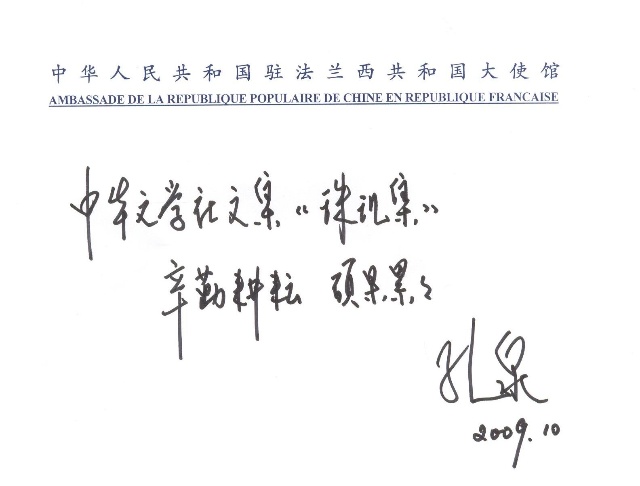 中华人民共和国驻法兰西共和国大使馆
AMBASSADE DE LA REPUBLIQUE POPULAIRE DE CHINE EN REPUBLIQUE FRANCAISE
中华文学社文集《珠玑集》
辛勤耕耘 硕果累々
孔泉
2009.10